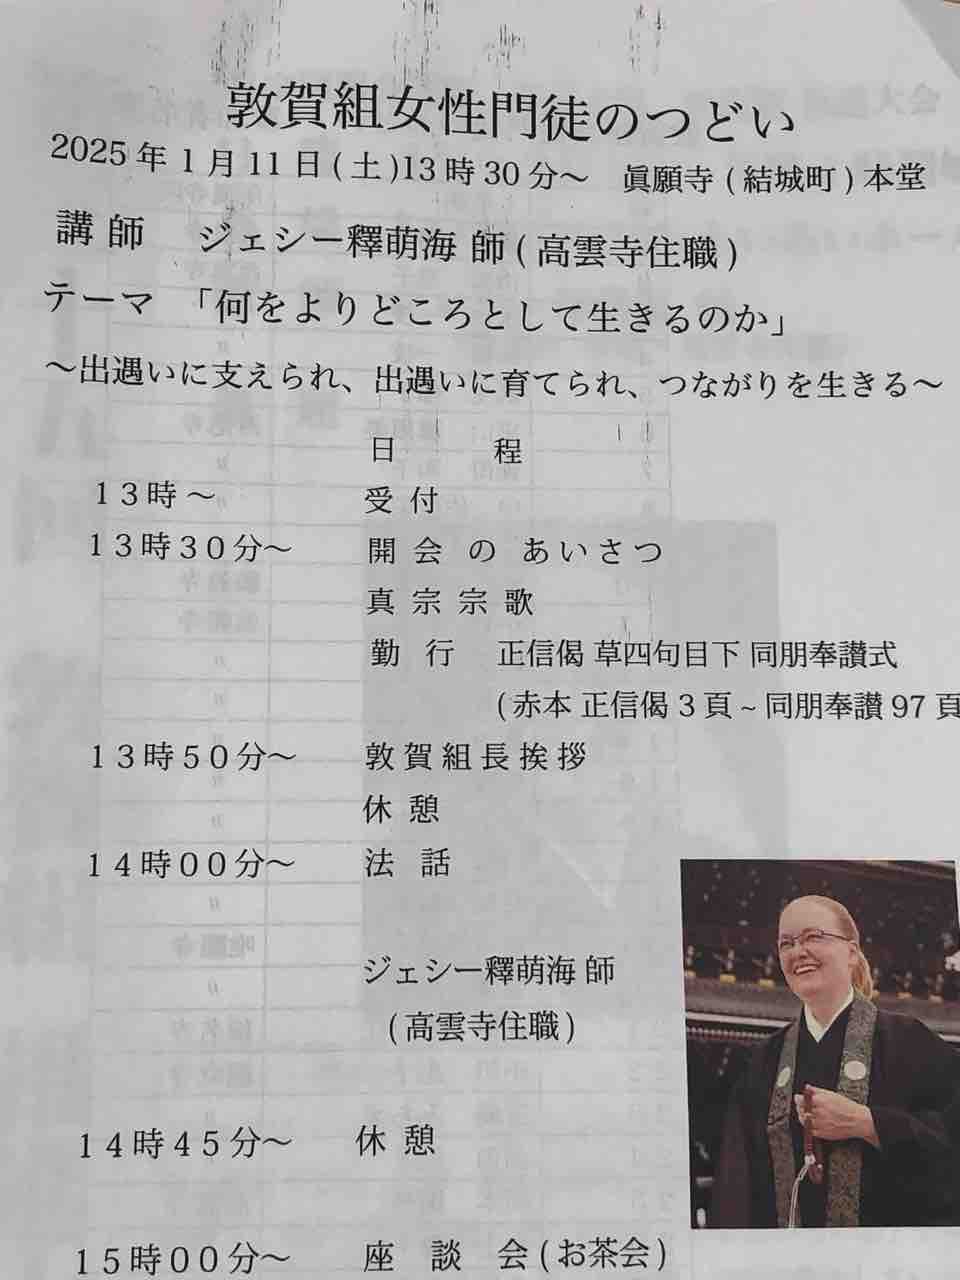 敦賀組女性門徒のつどい
2025年1月11日(土)13時30分～ 眞願寺(結城町)本堂
講師 ジェシー釋萌海 師(高雲寺住職)
テーマ 「何をよりどころとして生きるのか」
～出遇いに支えられ、出遇いに育てられ、つながりを生きる～
日 程
13時～ 受付
13時30分～ 開会のあいさつ
真宗宗歌
勤行 正信偈 草四句目下 同朋奉讃式
(赤本 正信偈3頁~同朋奉讃97頁
13時50分～ 敦賀組長挨拶
休憩
14時00分～ 法話
ジェシー釋萌海 師
(高雲寺住職)
14時45分～ 休憩
15時00分～ 座談会(お茶会)